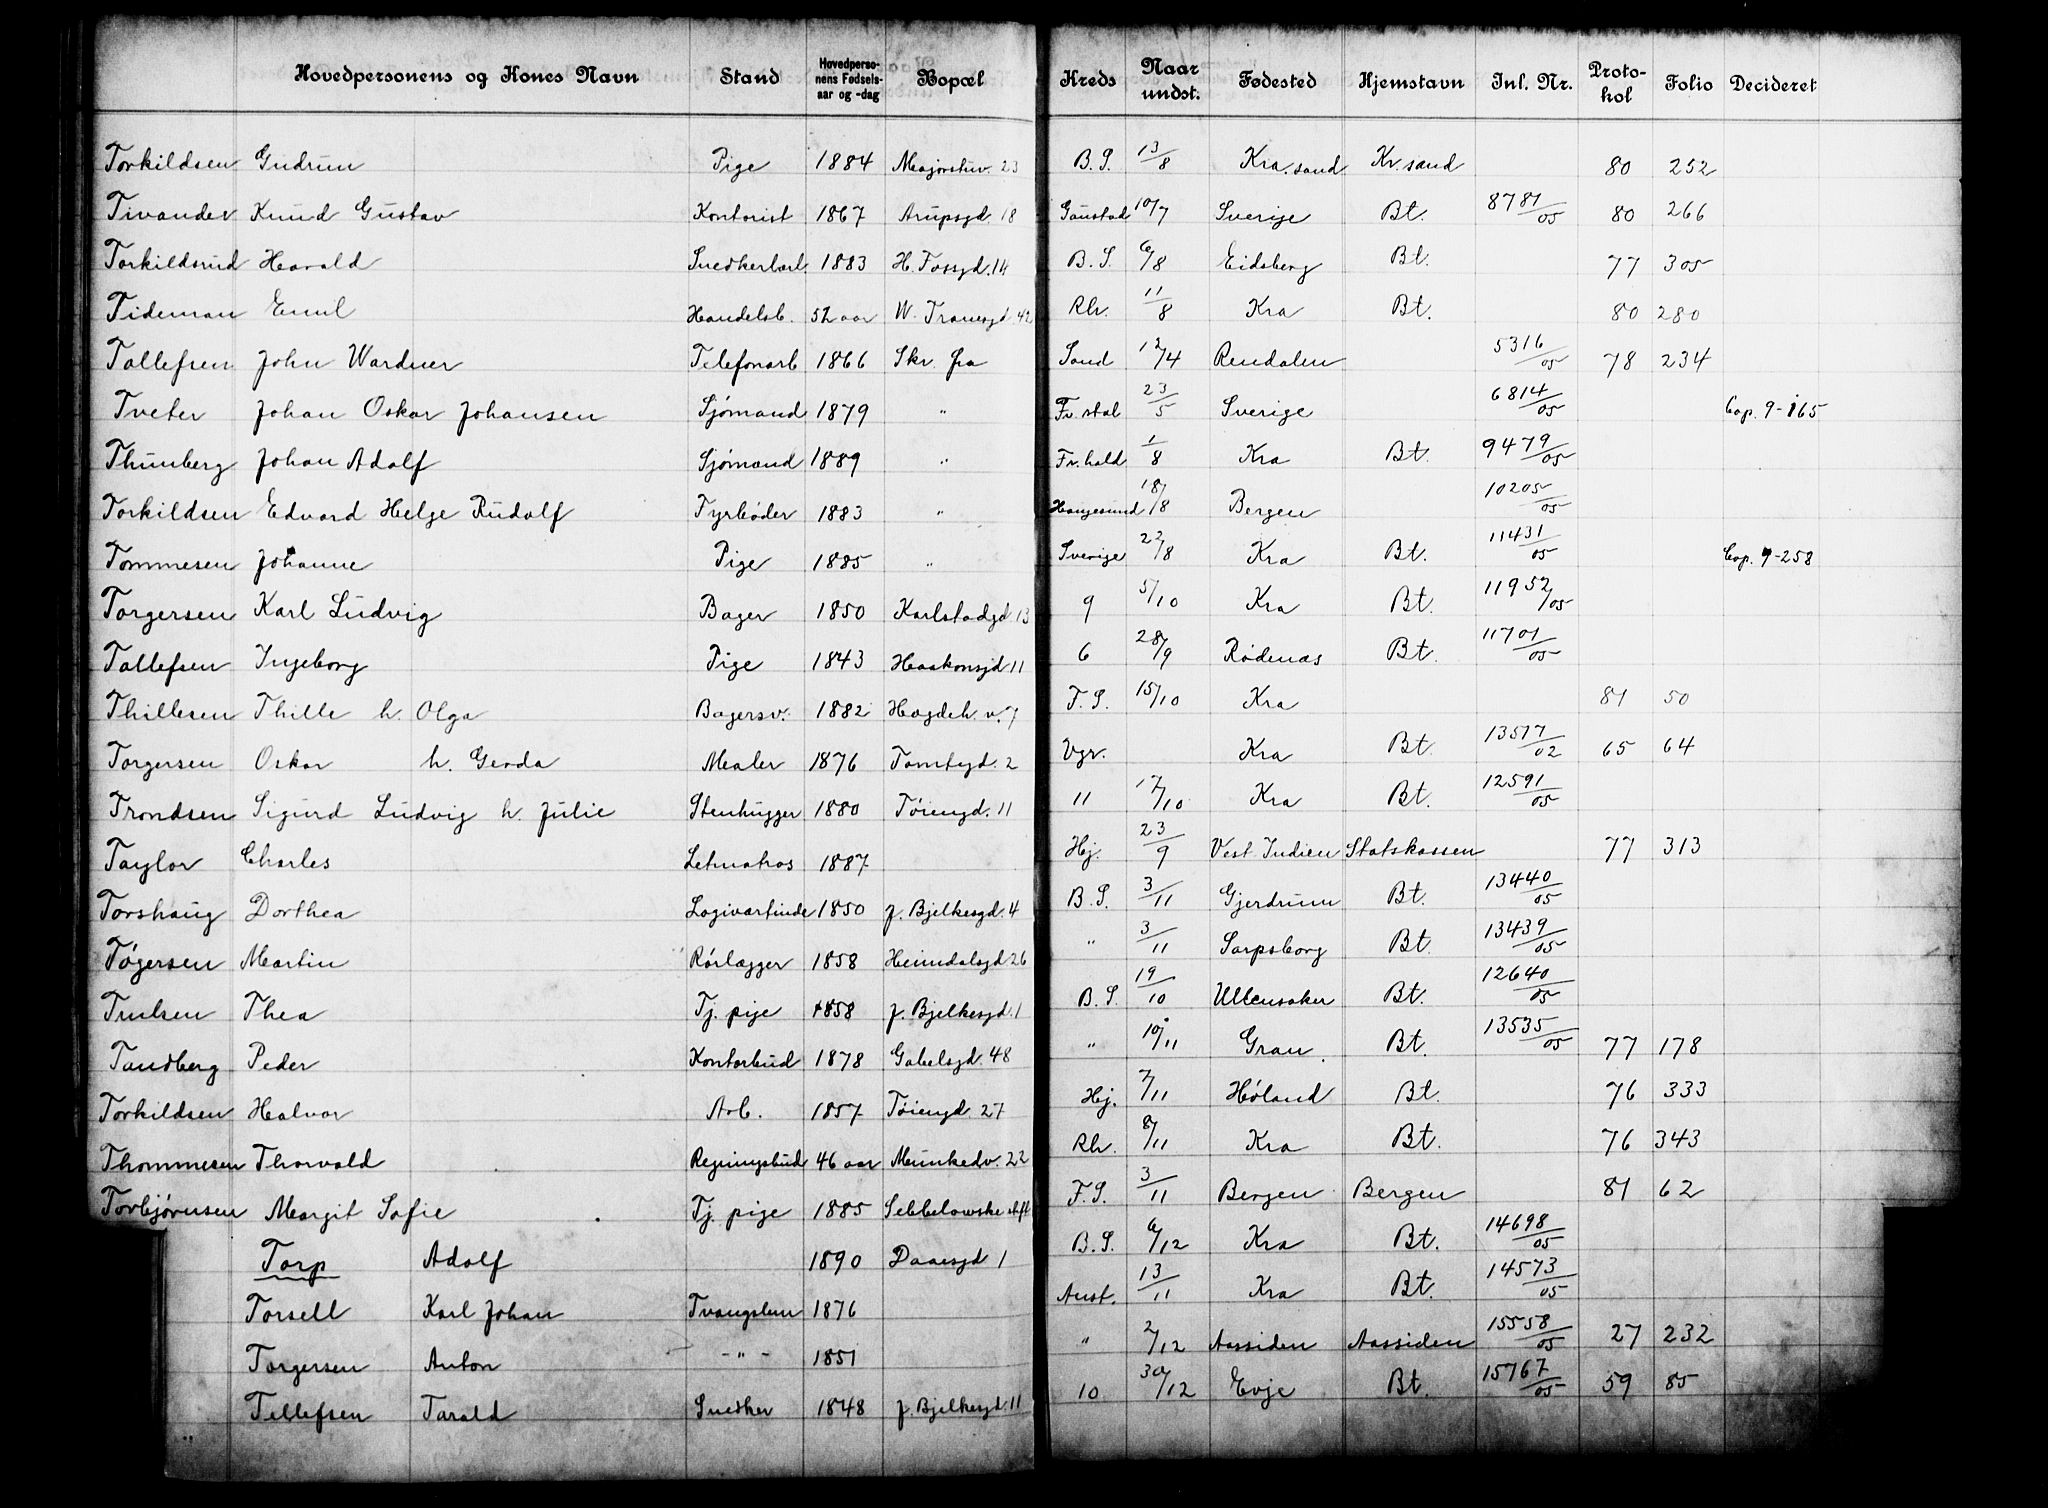 Hovedpersonens og Kones Navn Stand Hovedperso-nens Fødsels-aar og -dag Bopæl Kreds Naar undst. Fødested Hjemstavn Inl. Nr. Proto-kol Folio Decideret
Torkildsen Gudrun Pige 1884 Majorstuv. 23 B. S. 13/8 Kra.sand Kr.sand 80 252
Tivander Knud Gustav Kontorist 1867 Arupsgd 18 Gaustad 10/7 Sverige Bt. 8781/05 80 266
Torkildsrud Harald Snedkerlærl. 1883 H. Tossgd. 14 B. S. 6/8 Eidsberg Bt. 77 305
Tideman Emil Handelsb. 52 aar W. Tranesgd 42 Rh. 11/8 Kra Bt. 80 280
Tallefsen John Wardner Telefonarb 1866 Skr. fra Sand 12/4 Rendalen 5316/05 78 234
Tveter Johan Oskar Johansen Sjømand 1879 " Fr.stad 23/5 Sverige 6814/05 Cop. 9-165
Thunberg Johan Adolf Sjømand 1889 " Fr.hald 1/8 Kra Bt. 9479/05
Torkildsen Edvard Helge Rudolf Fyrbøder 1883 " Haugesund 18/8 Bergen 10205/05
Tommesen Johanne Pige 1885 " Sverige 22/8 Kra Bt. 11431/05 Cop. 9-258
Torgersen Karl Ludvig Bager 1850 Karlstadgd 13 9 5/10 Kra Bt. 11952/05
Tallefsen Ingeborg Pige 1843 Haakonsgd 11 6 28/9 Rødenæs Bt. 11701/05
Thillesen Thille h. Olga Bagersv. 1882 Hagdeh. v. 7 F. S. 15/10 Kra 81 50
Torgersen Oskar h. Gerda Maler 1876 Tomtegd. 2 Vgr. Kra Bt. 13577/02 65 64
Trondsen Sigurd Ludvig h. Julie Stenhugger 1880 Tøiengd. 11 11 17/10 Kra Bt. 12591/05
Taylor Charles Letmatros 1887 Hj. 23/9 Vest Indien Statskassen 77 313
Torshaug Dorthea Logivertinde 1850 J. Bjelkesgd. 4 B. S. 3/11 Gjerdrum Bt. 13440/05
Tøgersen Martin Rørlægger 1858 Heimdalsgd 26 " 3/11 Sarpsborg Bt. 13439/05
Trulsen Thea Tj. pige 1858 J. Bjelkesgd. 1 B. S. 19/10 Ullensaker Bt. 12640/05
Tandberg Peder Kontorbud 1878 Gabelsgd. 48 " 10/11 Gran Bt. 13535/05 77 178
Torkildsen Halvor Arb. 1857 Tøiengd 27 Hj. 7/11 Høland Bt. 76 333
Thommesen Thorvald Regningsbud 46 aar Munkedv. 22 Rh. 8/11 Kra Bt. 76 343
Torbjørnsen Margit Sofie Tj. pige 1885 Sebbelowske stift F. S. 3/11 Bergen Bergen 81 62
Torp Adolf 1890 Daaesgd 1 B. S. 6/12 Kra Bt. 14698/05
Torsell Karl Johan Tvangslem 1876 Anst. 13/11 Kra Bt. 14573/05
Torgersen Anton - " - 1851 " 2/12 Aassiden Aassiden 15558/05 27 232
Tellefsen Tarald Snedker 1848 J. Bjelkesgd. 11 10 30/12 Evje Bt. 15767/05 59 85